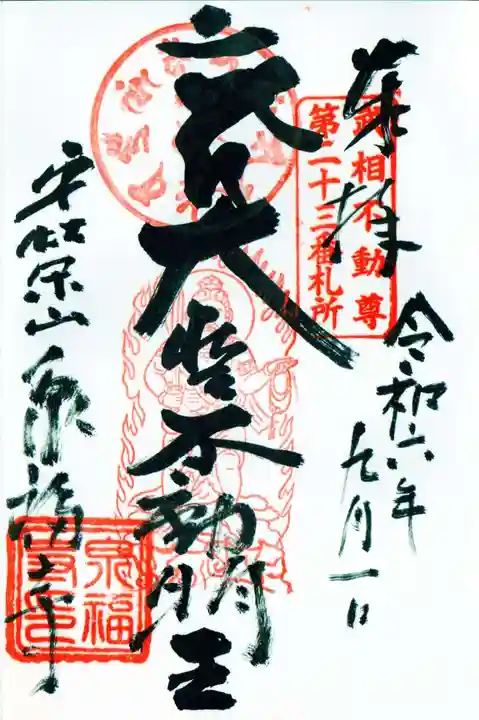 奉拝
武相不動尊
第二十三番札所
令和六年
九月一日
大聖不動明王
山 泉福寺
泉福
寺印